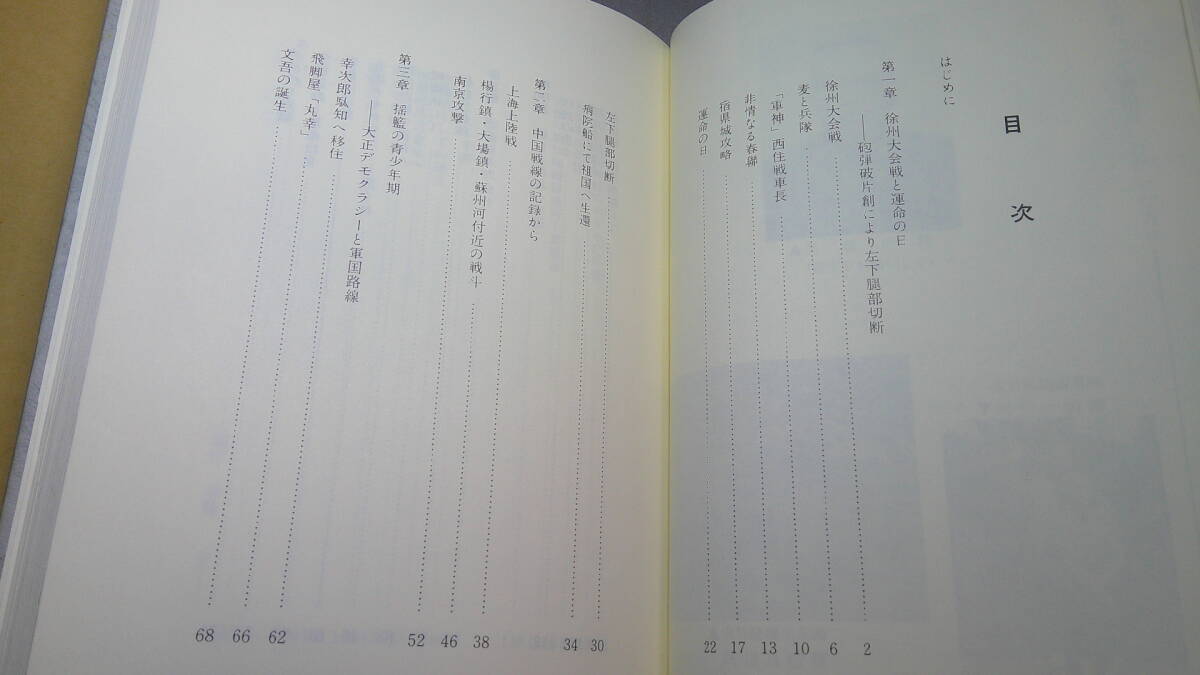 目次
はじめに
第一章 徐州大会戦と運命の日
——砲弾破片創により左下腿部切断
徐州大会戦……2
麦と兵隊……6
「軍神」西住戦車長……10
非情なる春聯……13
宿県城攻略……17
運命の日……22
左下腿部切断……30
病院船にて祖国へ生還……34
第二章 中国戦線の記録から
上海上陸戦……38
楊行鎮・大場鎮・蘇州河付近の戦斗……46
南京攻撃……52
第三章 揺籃の青少年期
——大正デモクラシーと軍国路線
幸次郎馱知へ移住……62
飛脚屋「丸幸」……66
文吾の誕生……68